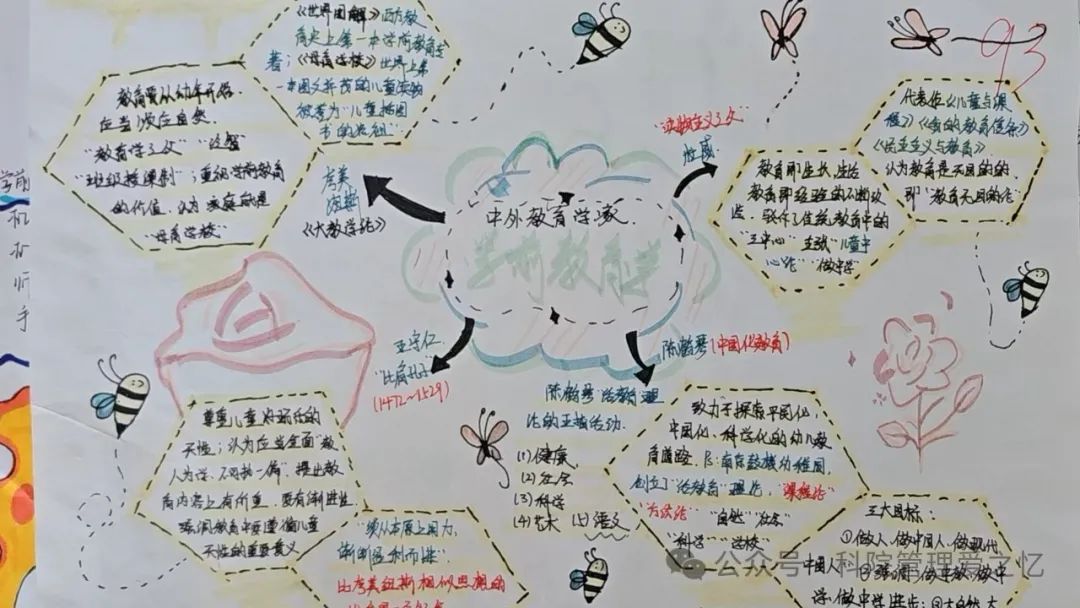 《世界图解》西方教
育史上第一本学前教育专
著；《母育学校》世界上第
一本图文并茂的儿童读物
被誉为"儿童插图
书的始祖"
教育要从幼年开始，
应当顺应自然
"教育学之父" "泛智"
"班级授课制"；重视学前教育
的价值，认为家庭就是
"母育学校"
夸美
纽斯
《大教学论》
93
代表作《儿童与课
程》《我的教育信条》
《民主主义与教育》
认为教育是无目的的，
即"教育无目的论"
"实验主义之父"
杜威
教育即生长，生活
教育即经验的不断改
造
教育中的
"三中心"主张"儿童中
心论" "做中学"
中外教育学家
学前教育学
学前
手
王守仁
(1472~1529)
陈鹤琴(中国化教育)
陈鹤琴活教育理
论的五指活动
(1)健康，
(2)社会
(3)科学
(4)艺术 (5)语文
尊重儿童
天性；认为应当全面"教
人为学，不可执一偏"，提出教
育内容上有所
强调教育中要遵循儿童
天性的重要意义
"须从本原上用力，
渐渐盈科而进"
比夸美纽斯相似思想的
致力于探索平民化，
中国化、科学化的幼儿教
育道路，
南京鼓楼幼稚园，
创立了"活教育"理论，"课程论"
"方法论" "自然" "社会"
"科学" "学校"
三大目标：
①做人、做中国人、做现代
中国人 ②强调"做中教，做中
学，做中求进步；③大自然、大
公众号 · 科院管理爱之忆